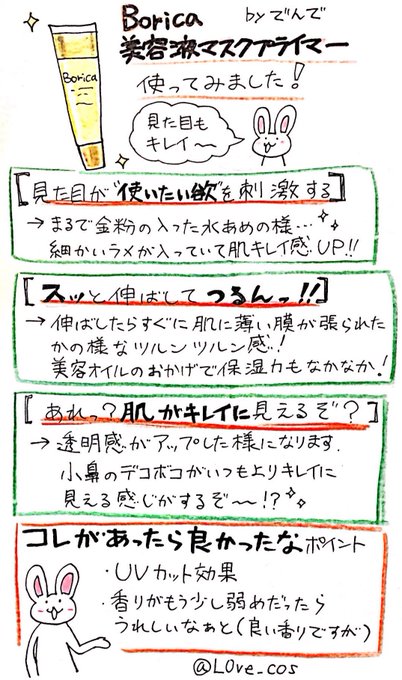 Borica byでんで
美容液マスクプライマー
使ってみました!
Borica
見た目も
キレイ〜
[見た目が"使いたい欲"を刺激する]
→まるで金粉の入った水あめの様…
細かいラメが入っていて肌キレイ感UP!!
[スッと伸ばしてつるんっ!!]
→伸ばしたらすぐに肌に薄い膜が張られた
かの様なツルンツルン感!
美容オイルのおかげで保湿力もなかなか!
[あれっ?肌がキレイに見えるぞ?]
→透明感がアップした様になります.
小鼻のデコボコがいつもよりキレイに
見える感じがするぞ〜!?
コレがあったら良かったなポイント
・UVカット効果
・香りがもう少し弱めだったら
うれしいなぁと(良い香りですが)
@L0ve_cos